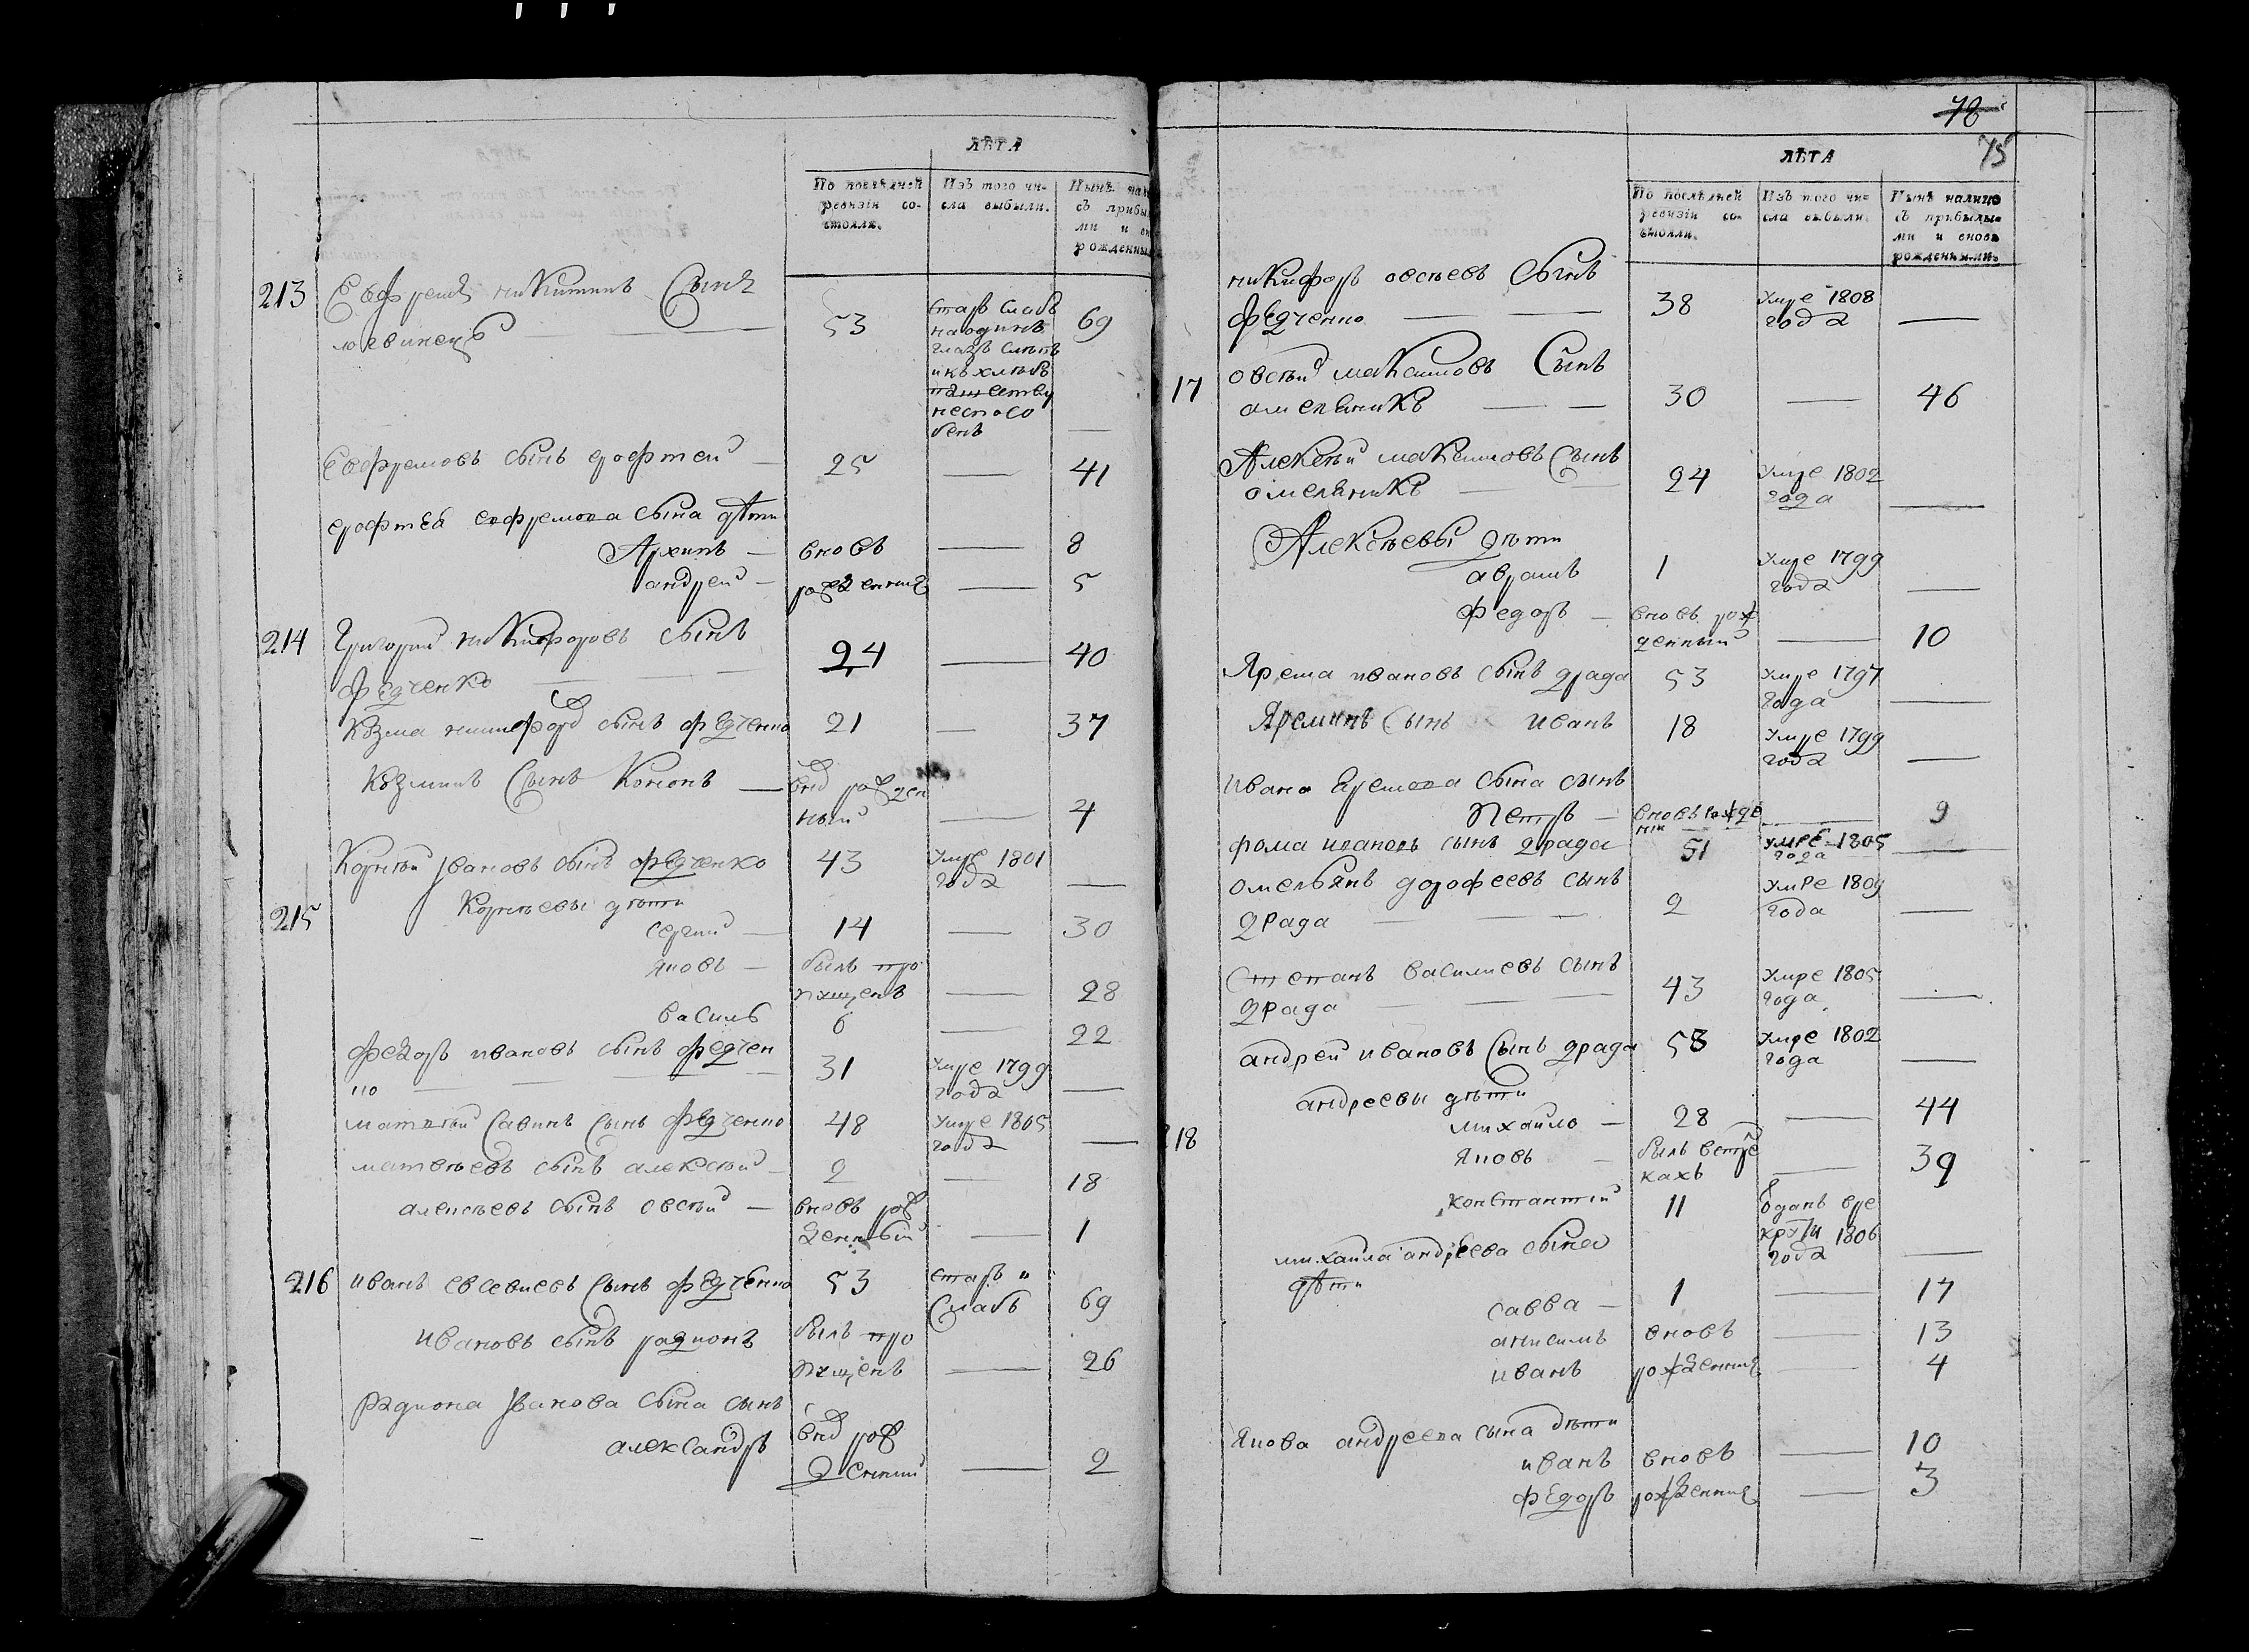 ЛѢТА
По послѣдней ревизіи со-стояли.
Изъ того чи-сла выбыли.
Нынѣ
213 Евфремъ никитинъ Сынъ
53
старъ слабъ
69
на одинъ
глазъ слѣпъ
и къ хлѣбо
пашеству
неспосо
бенъ
Евфремовъ сынъ ерофтей — 25 — 41
ерофтѣя евфремова сына дѣти
Архипъ — вновь — 8
андрей — рожденние — 5
214 Григорий никифоровъ сынъ
24 — 40
Федченко
козма никифоровъ сынъ федченко 21 — 37
козминъ Сынъ Кононъ — вновь рожден
ный — 4
Корнѣй Ивановъ сынъ федченко 43 умре 1801
года —
215 Корнѣевы дѣти
сергий — 14 — 30
яковъ — былъ про
пущенъ — 28
василь 6 — 22
федоръ ивановъ сынъ федчен
ко 31 умре 1799
года —
матвѣй Савинъ Сынъ федченко 48 умре 1805
года —
матвѣевъ сынъ алексѣй — 2 — 18
алексѣевъ сынъ овсѣй — вновь рож
денный — 1
216 иванъ евсевиевъ Сынъ федченко 53 старъ и
слабъ 69
ивановъ сынъ радионъ былъ про
пущенъ — 26
радиона Иванова сына сынъ
александръ вновь рож
денний — 2
78
75
ЛѢТА
По послѣдней ревизіи со-стояли.
Изъ того чи-сла выбыли.
Нынѣ налицо съ прибылы-ми и вновь рожденными.
никифоръ овсѣевъ Сынъ
федченко 38 умре 1808
года —
17 овсѣй максимовъ Сынъ
омельяникъ 30 — 46
Алексѣй максимовъ Сынъ
омеляникъ 24 умре 1802
года —
Алексѣевы дѣти
аврамъ 1 умре 1799
года —
федоръ — вновь рож
денный — 10
Ярема ивановъ сынъ драда 53 умре 1797
года —
Яреминъ Сынъ иванъ 18 умре 1799
года —
ивана Яремова сына сынъ
Петръ — вновь рожде — 9
фома ивановъ сынъ драда 51 умре 1805
года —
омельянъ дорофеевъ сынъ
драда 2 умре 1809
года —
Степанъ василиевъ сынъ
драда 43 умре 1805
года —
андрей ивановъ Сынъ драда 58 умре 1802
года —
андреевы дѣти
михайло — 28 — 44
18
яковъ — былъ
кахъ — 39
константий 11 отданъ вре
круты 1806
года —
михайла андреева сына
дѣти
савва — 1 — 17
анисимъ вновь — 13
иванъ рожденние — 4
Якова андреева сына дѣти
иванъ вновь — 10
федоръ рожденние — 3